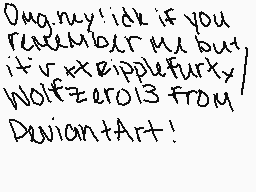 Omg.hey! idk if you
remember me but
it's xxRippleFurxx/
Wolfzero13 from
DeviantArt!